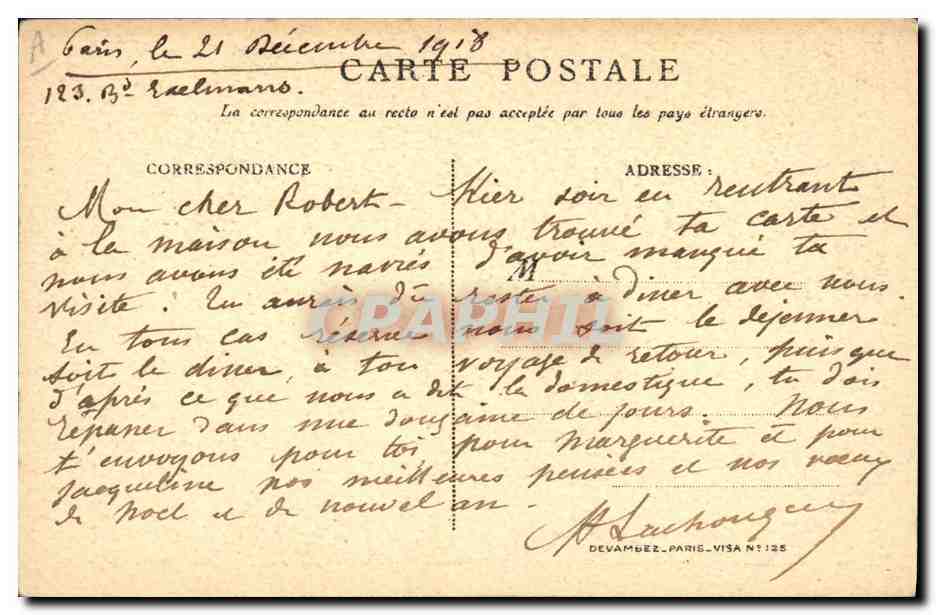 A
Paris, le 21 Décembre 1918
CARTE POSTALE
123. Bd Exelmans.
La correspondance au recto n'est pas acceptée par tous les pays étrangers.
CORRESPONDANCE
ADRESSE :
Mon cher Robert - Hier soir en rentrant
à la maison nous avons trouvé ta carte et
nous avons été navrés d'avoir manqué ta
M
visite. Tu aurais dû rester à diner avec nous.
En tous cas réserve nous soit le dejeuner
soit le diner, à ton voyage de retour, puisque
d'après ce que nous a dit la domestique, tu dois
repasser dans une douzaine de jours. Nous
t'envoyons pour toi, pour Marguerite et pour
Jacqueline nos meilleures pensées et nos voeux
de Noel et de nouvel an.
CPAPHIL
DEVAMBEZ_PARIS_VISA No 125